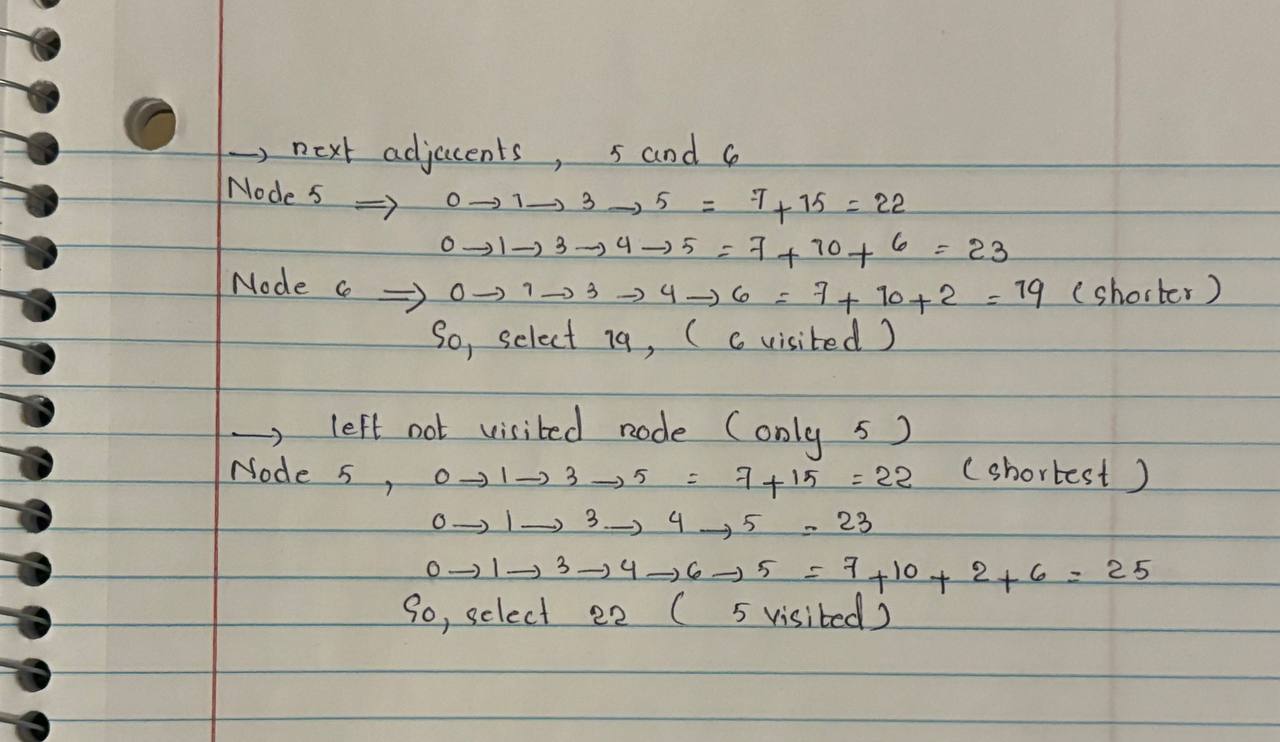 → next adjacents, 5 and 6
Node 5 ⇒ 0 → 1 → 3 → 5 = 7 + 15 = 22
0 → 1 → 3 → 4 → 5 = 7 + 10 + 6 = 23
Node 6 ⇒ 0 → 1 → 3 → 4 → 6 = 7 + 10 + 2 = 19 (shorter)
So, select 19, (6 visited)
→ left not visited node (only 5)
Node 5, 0 → 1 → 3 → 5 = 7 + 15 = 22 (shortest)
0 → 1 → 3 → 4 → 5 = 23
0 → 1 → 3 → 4 → 6 → 5 = 7 + 10 + 2 + 6 = 25
So, select 22 (5 visited)